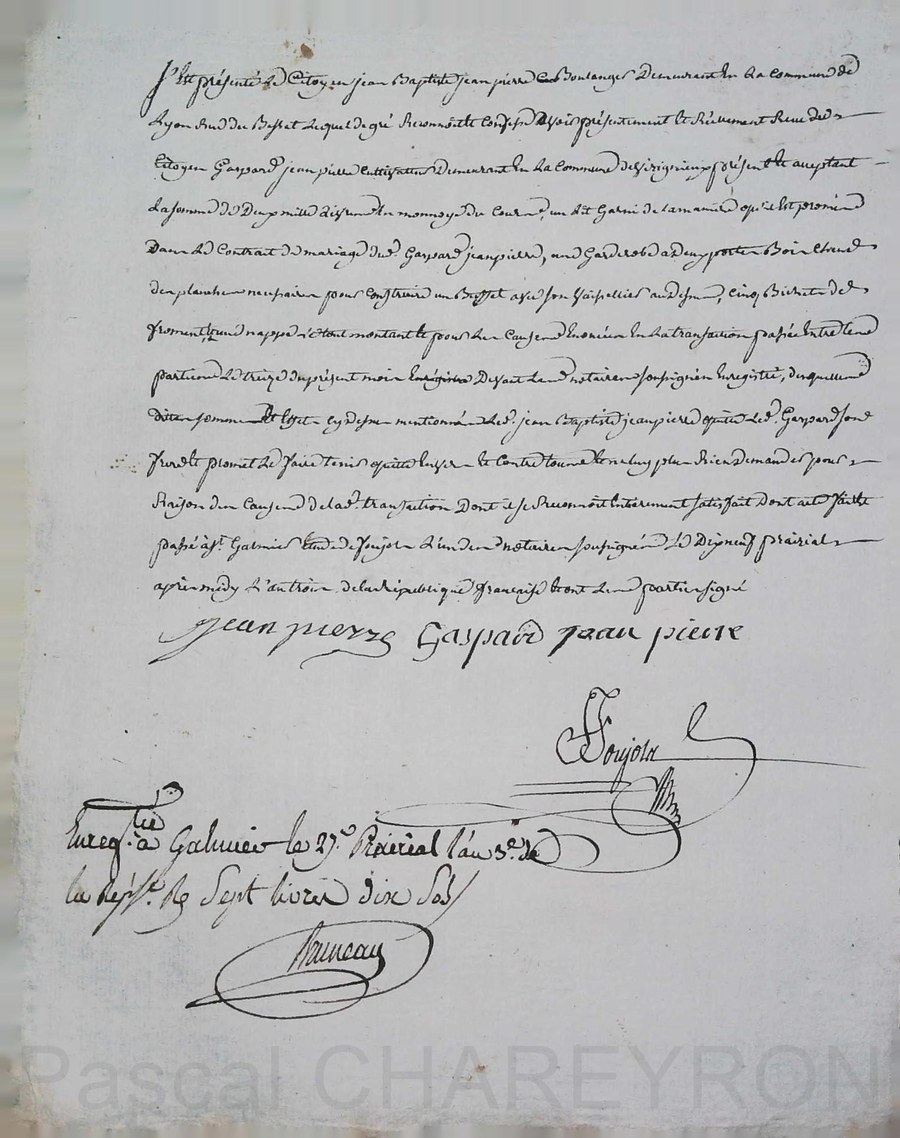 S'est présenté Le Citoyen jean Baptiste jean pierre Boulanger Demeurant En La Commune de
Lyon Rue du Bessat Lequel de gré Reconnoit et Confesse avoir présentement et Réellement Receu du
Citoyen Gaspard jean pierre Cultivateur Demeurant En La Commune de Vérignieux présent et acceptant
La somme de Deux mille Livres En monnoye du Cours, un Lit Garni de La maniere qu'il Est promis
Dans Le Contrat de mariage dud. Gaspard jean pierre, une Garderobe a deux portes Bois
des planches necessaires pour Construire un Buffet avec son Vaisellier au dessus, cinq Bichets de
froment, une nappe, Le tout montant et pour Les Causes Enoncées En La transaction passée Entre Les
parties Le treize du présent mois Devant Le notaire soussigné Enregistré, desquelles
dites sommes Et Effets cy dessus mentionnés Led. jean Baptiste jean pierre quitte Led. Gaspard son
frere Et promet Le faire tenir quitte Envers Et Contre tous Et ne luy plus Rien demander pour
Raison des Causes de lad. transaction Dont il se Reconnoit Entierement satisfait Dont acte fait et
passé à St. Galmier Etude de Soujols L'un des notaires soussignés Le Dix neuf prairial
après midy L'an trois de la République française Et ont Les parties signé
jean pierre Gaspard jean pierre
Soujols
Enregistré à Galmier le 27e. Prairial l'an 3e. de
la Rép. R Sept livres dix sols
Bruneau
Pascal CHAREYRON